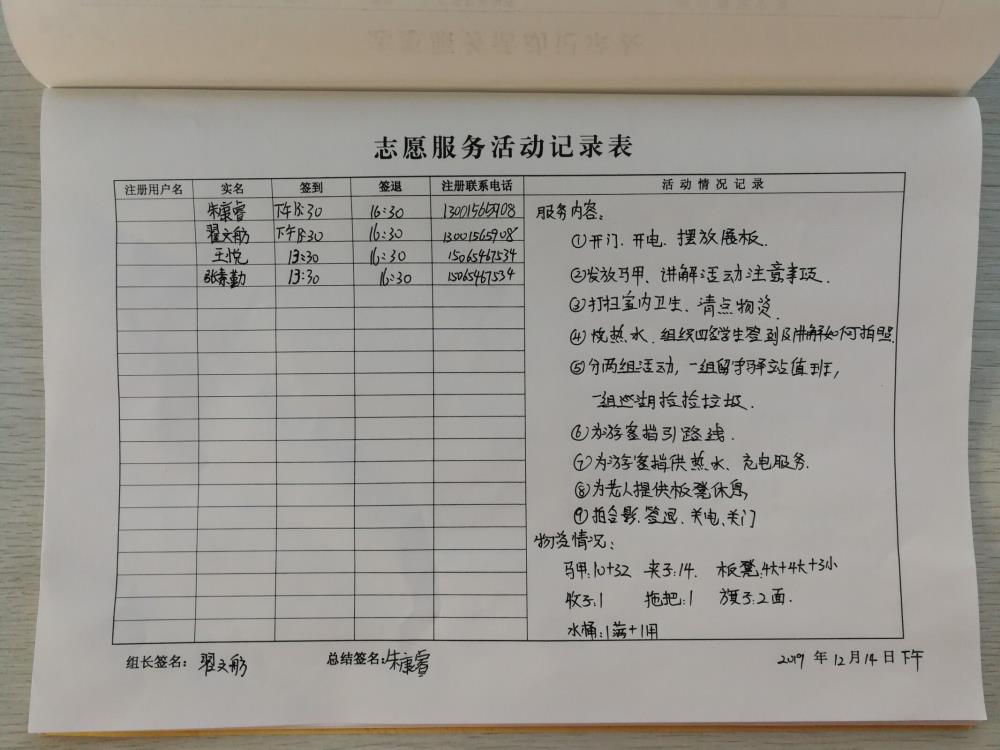 志愿服务活动记录表
注册用户名 实名 签到 签退 注册联系电话 活动情况记录
朱康睿 下午13:30 16:30 13001565908
翟文舫 下午13:30 16:30 13001565908
王悦 13:30 16:30 15065467534
张素勤 13:30 16:30 15065467534
服务内容:
①开门、开电、摆放展板.
②发放马甲、讲解活动注意事项.
③打扫室内卫生、清点物资.
④烧热水、组织四名学生签到及讲解如何拍照.
⑤分两组活动,一组留守驿站值班,
一组巡湖捡捡垃圾.
⑥为游客指引路线.
⑦为游客提供热水、充电服务.
⑧为老人提供板凳休息
⑨拍合影、签退、关电、关门
物资情况:
马甲:10+32 夹子:14. 板凳:4大+4大+3小
牧子:1 拖把:1 旗子:2面.
水桶:1满+1用
组长签名: 翟文舫 总结签名: 朱康睿 2019年12月14日下午